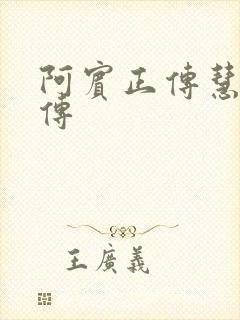 阿賓正傳慧
傳
王廣義